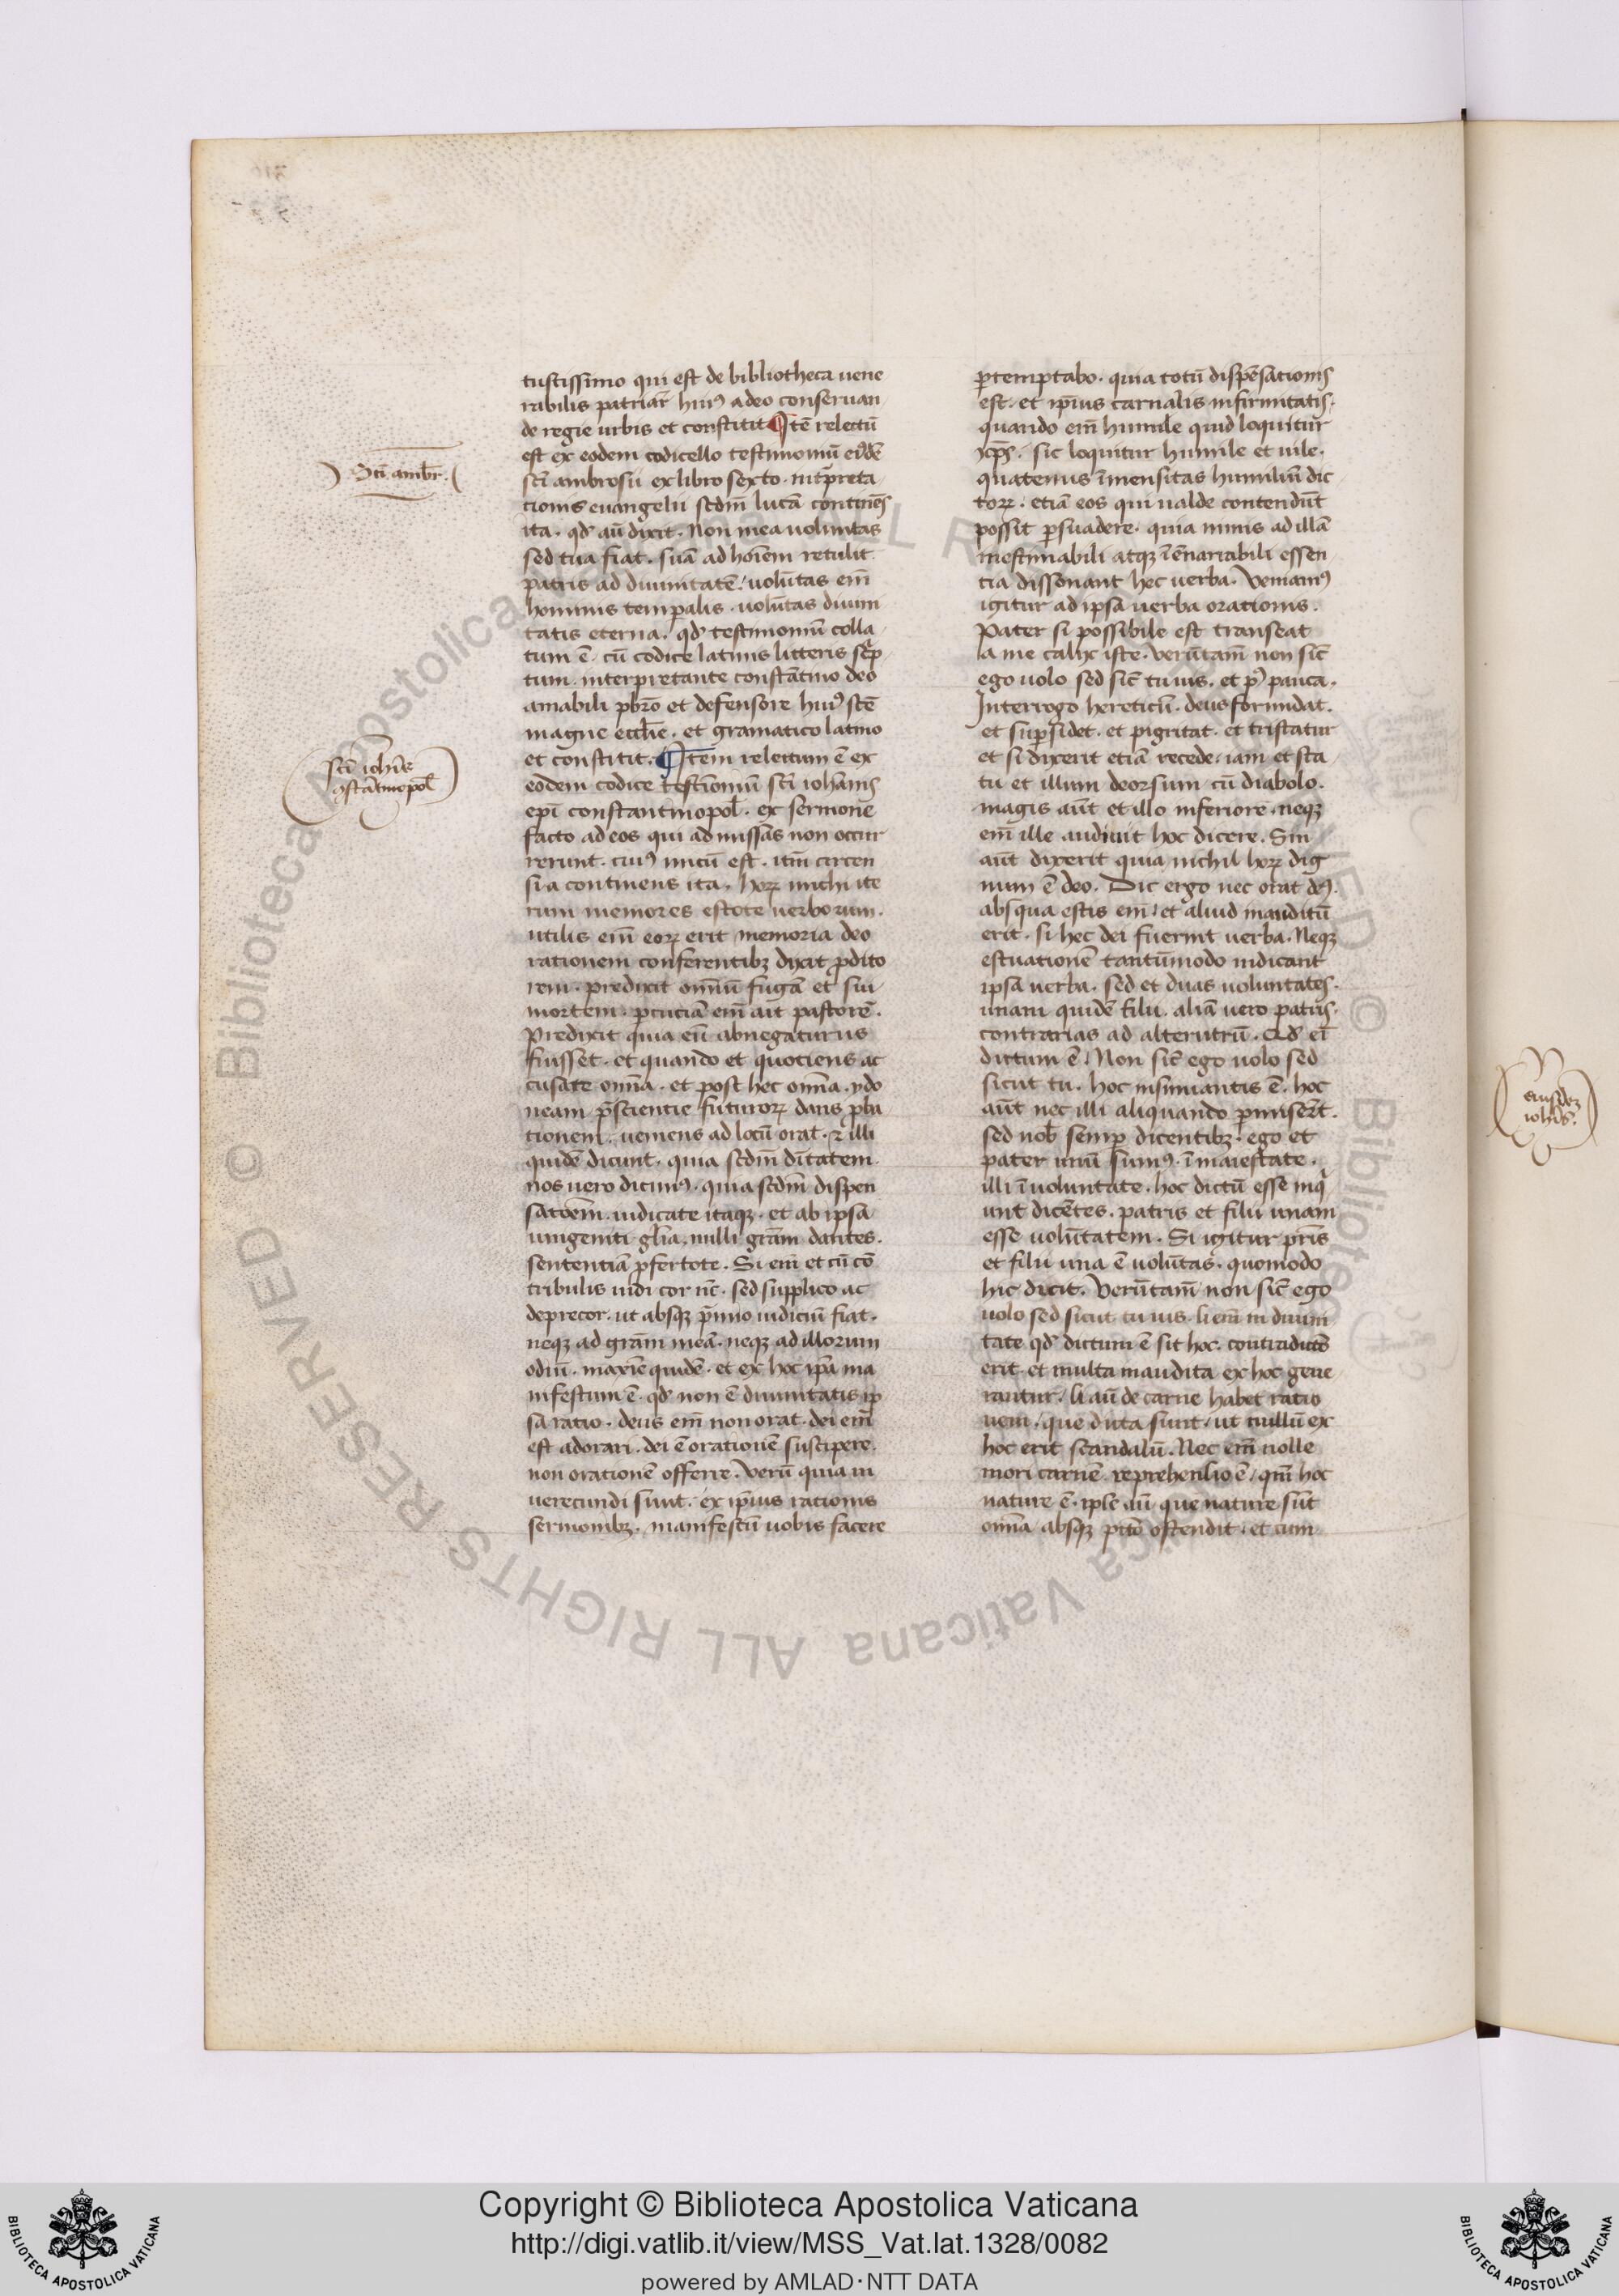 Sci ambr.
tustissimo qui est de bibliotheca uene
rabilis patriar̄ huiꝰ adeo conseruan
de regie urbis et constitit ¶ Itē relectū
est ex eodem codicello testimoniū eiꝰdē
sc̄i ambrosii ex libro sexto int̄preta
tionis euangelii scdm̄ lucā continēs
ita. qd̓ aū dixit. Non mea uoluntas
sed tua fiat. suā ad hoīem retulit
patris ad diuinitatē. uolūtas em̄
hominis temꝑalis. uolūtas diuini
tatis eterna. qd̓ testimoniū colla
tum ē. cū codice latinis litteris scͥp
tum. interpretante constātino deo
amabili pbr̄o et defensore huiꝰ scē
magne eccl̄ie. et gramatico latino
et constitit. ¶ Item relectum ē ex
sc̄i ioh̄is
ꝯstātinopol̄
eodem codice testīoniū sc̄i ioh̄anis
epī constantinopol̄. ex sermone
facto ad eos qui ad missas non occur
rerunt. cuiꝰ inicū est. itm̄ circen
sia continens ita. hoꝝ michi ite
rum memores estote uerborum.
utilis em̄ eoꝝ erit memoria deo
rationem conferentibꝫ dixit ꝓdito
rem. predixit omniū fugā et sui
mortem. ꝑcutiā em̄ ait pastorē.
Predixit quia eū abnegaturus
fuisset. et quando et quotiens ac
cusate om̄a. et post hec om̄a. ydo
neam p̄scientie futuroꝝ dans ꝓba
tionem. ueniens ad locū orat. ⁊ illi
quidē dicunt. quia scdm̄ dīitatem
nos uero dicimꝰ. quia scdm̄ dispen
satōem. iudicate itaqꝫ. et ab ipsa
unigeniti gl̄ia. nulli grām dantes.
sententiā ꝓfertote. Si em̄ et cū cō
tribulis iudicor nc̄. sed supplico ac
deprecor. ut absqꝫ p̄mio iudiciū fiat.
neqꝫ ad grām meā. neqꝫ ad illorum
odiū. maxīe quidē. et ex hoc ip̄a ma
nifestum ē. qd̓ non ē diuinitatis ip
sa ratio. deus em̄ non orat. dei em̄
est adorari. dei ē orationē suscipere.
non orationē offerre. Verū quia in
uerecundi sunt. ex ip̄ius rationis
sermonibꝫ. manifestū uobis facere
ꝑtemptabo. quia totū dispēsationis
est. et ip̄ius carnalis infirmitatis.
quando em̄ humile quid loquitur
xp̄s. sic loquitur humile et uile.
quatenus īmensitas humiliū dic
toꝝ. etiā eos qui ualde contendūt
possit ꝑsuadere. quia nimis ad illā
inestimabili atqꝫ īenarrabili essen
tia dissonant hec uerba. Veniamꝰ
igitur ad ipsa uerba orationis.
Pater si possibile est transeat
a me calix iste. uerūtam̄ non sic̄
ego uolo sed sic̄ tu uis. et pꝰ pauca.
Interrogo hereticū. deus formidat.
et suꝑsidet. et pigritat. et tristatur
et si dixerit etiā recede. iam et sta
tu et illum deorsum cū diabolo.
magis aūt et illo inferiore. neqꝫ
em̄ ille audiuit hoc dicere. Sin
aūt dixerit quia nichil hoꝝ dig
num ē deo. Dic ergo nec orat dꝰ.
absqua estis em̄. et aliud inauditū
erit. si hec dei fuerint uerba. Neqꝫ
estuationē tantūmodo indicant
ipsa uerba. sed et duas uoluntates.
unam quidē filii. aliā uero patris.
contrarias ad alterutrū. Qd̓ em̄
dictum ē. Non sic̄ ego uolo sed
sicut tu. hoc insinuantis ē. hoc
aūt nec illi aliquando ꝑmiserūt.
sed nob̄ semꝑ dicentibꝫ. ego et
pater unū sumꝰ. ī maiestate.
illi ī uoluntate. hoc dictū esse inqͥ
unt dicētes. patris et filii unam
esse uolūtatem. Si igitur pr̄is
et filii una ē uolūtas. quomodo
hic dicit. Verūtam̄ non sic̄ ego
uolo sed sicut tu uis. si em̄ in diuini
tate qd̓ dictum ē sit hoc. contradictō
erit. et multa inaudita ex hoc gene
rantur. si aū de carne habet ratio
nem. que dicta sunt. ut nullū ex
hoc erit scandalū. Nec em̄ nolle
mori carnē. reprehensio ē. qm̄ hoc
nature ē. ipse aū que nature sūt
om̄a absqꝫ pctō ostendit. et cum
eiusdeꝫ
ioh̄is.
© Biblioteca Apostolica Vaticana ALL RIGHTS RESERVED © Biblioteca Apostolica Vaticana ALL RIGHTS RESERVED
Copyright © Biblioteca Apostolica Vaticana
http://digi.vatlib.it/view/MSS_Vat.lat.1328/0082
powered by AMLAD·NTT DATA
BIBLIOTECA APOSTOLICA VATICANA
BIBLIOTECA APOSTOLICA VATICANA